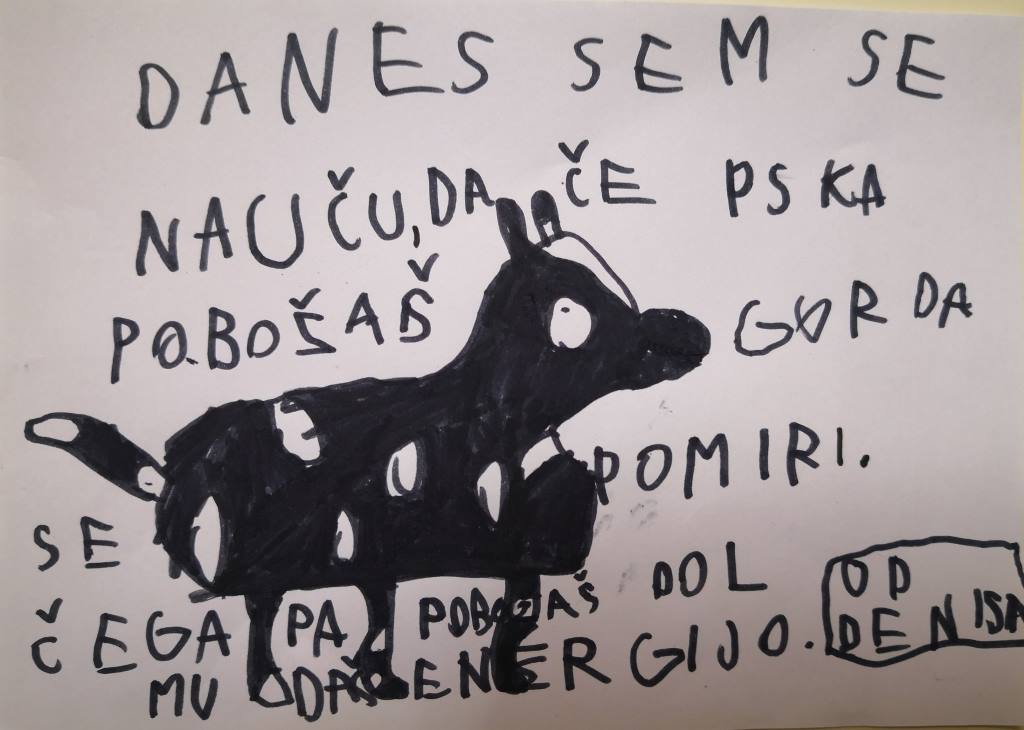 DANES SEM SE
NAUČU, DA ČE PSKA
POBOŠAŠ GOR DA
SE POMIRI.
ČE GA PA POBOŽAŠ DOL
MU DAŠ ENERGIJO.
OD
DENISA